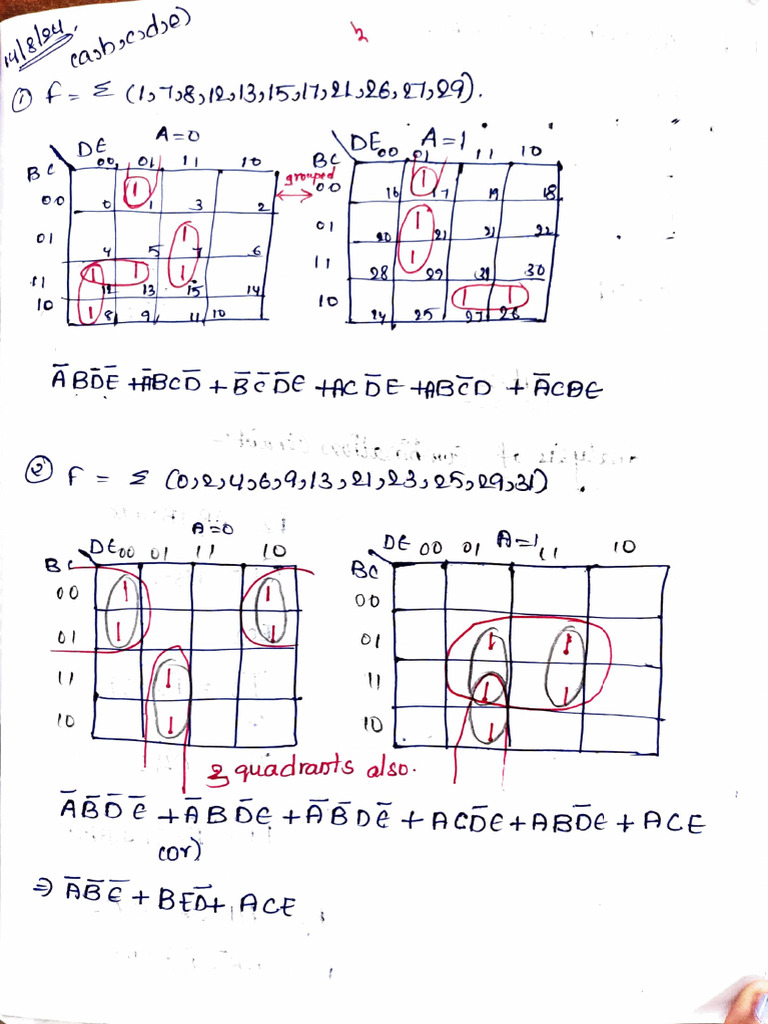 14/8/24.
(a,b,c,d,e)
① f = Σ (1,7,8,12,13,15,17,21,26,27,29).
DE A=0
00 01 11 10
BC
00 1
0 1 3 2
01 1
4 5 7 6
11 1 1 1
12 13 15 14
10 1
8 9 11 10
grouped
DE A=1
00 01 11 10
BC
00 1
16 17 19 18
01 1
20 21 21 22
11 1
28 29 31 30
10 1 1
24 25 27 26
A̅BD̅E̅ + A̅BCD̅ + B̅C̅D̅E + ACD̅E + ABC̅D + A̅CDE
② F = Σ (0,2,4,6,9,13,21,23,25,29,31).
A=0
DE 00 01 11 10
BC
00 1 1
01 1 1
11 1
10 1
DE 00 01 A=1 11 10
BC
00
01 1 1
11 1 1
10 1
2 quadrants also.
A̅B̅D̅e̅ + A̅BD̅e + A̅B̅De̅ + ACD̅e + ABD̅e + ACE
(or)
⇒ A̅B̅E̅ + BED̅ + ACE